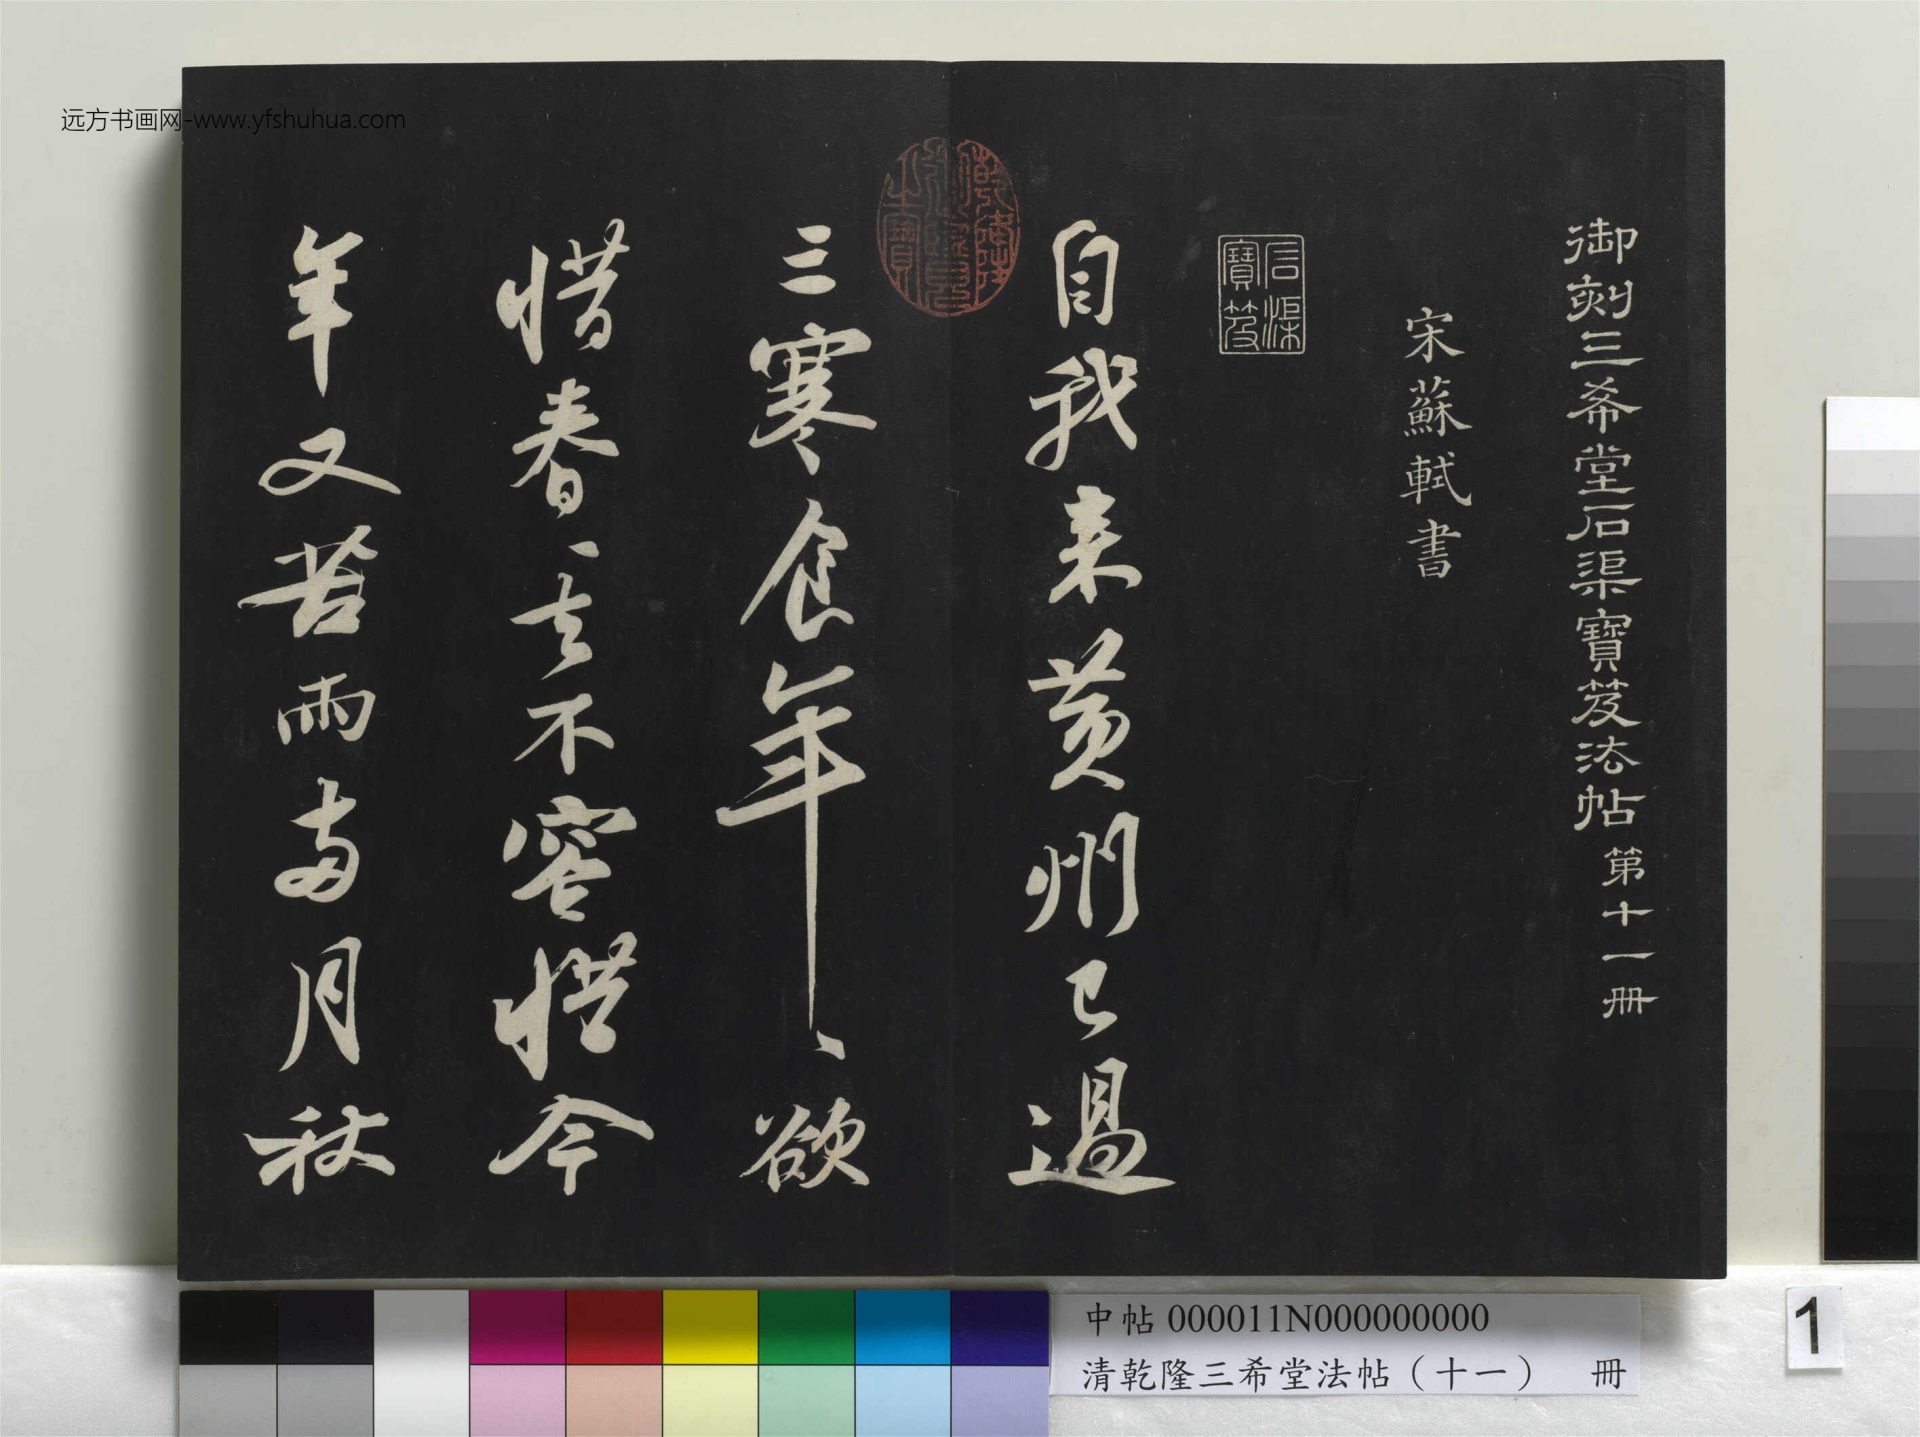 御刻三希堂石渠寶笈法帖第十一冊
宋蘇軾書
石渠寶笈
自我来黃州已過
三寒食年、欲
惜春、去不容惜今
年又苦雨兩月秋
乾隆御覽之寶
远方书画网-www.yfshuhua.com
中帖 000011N000000000
清乾隆三希堂法帖（十一） 冊
1